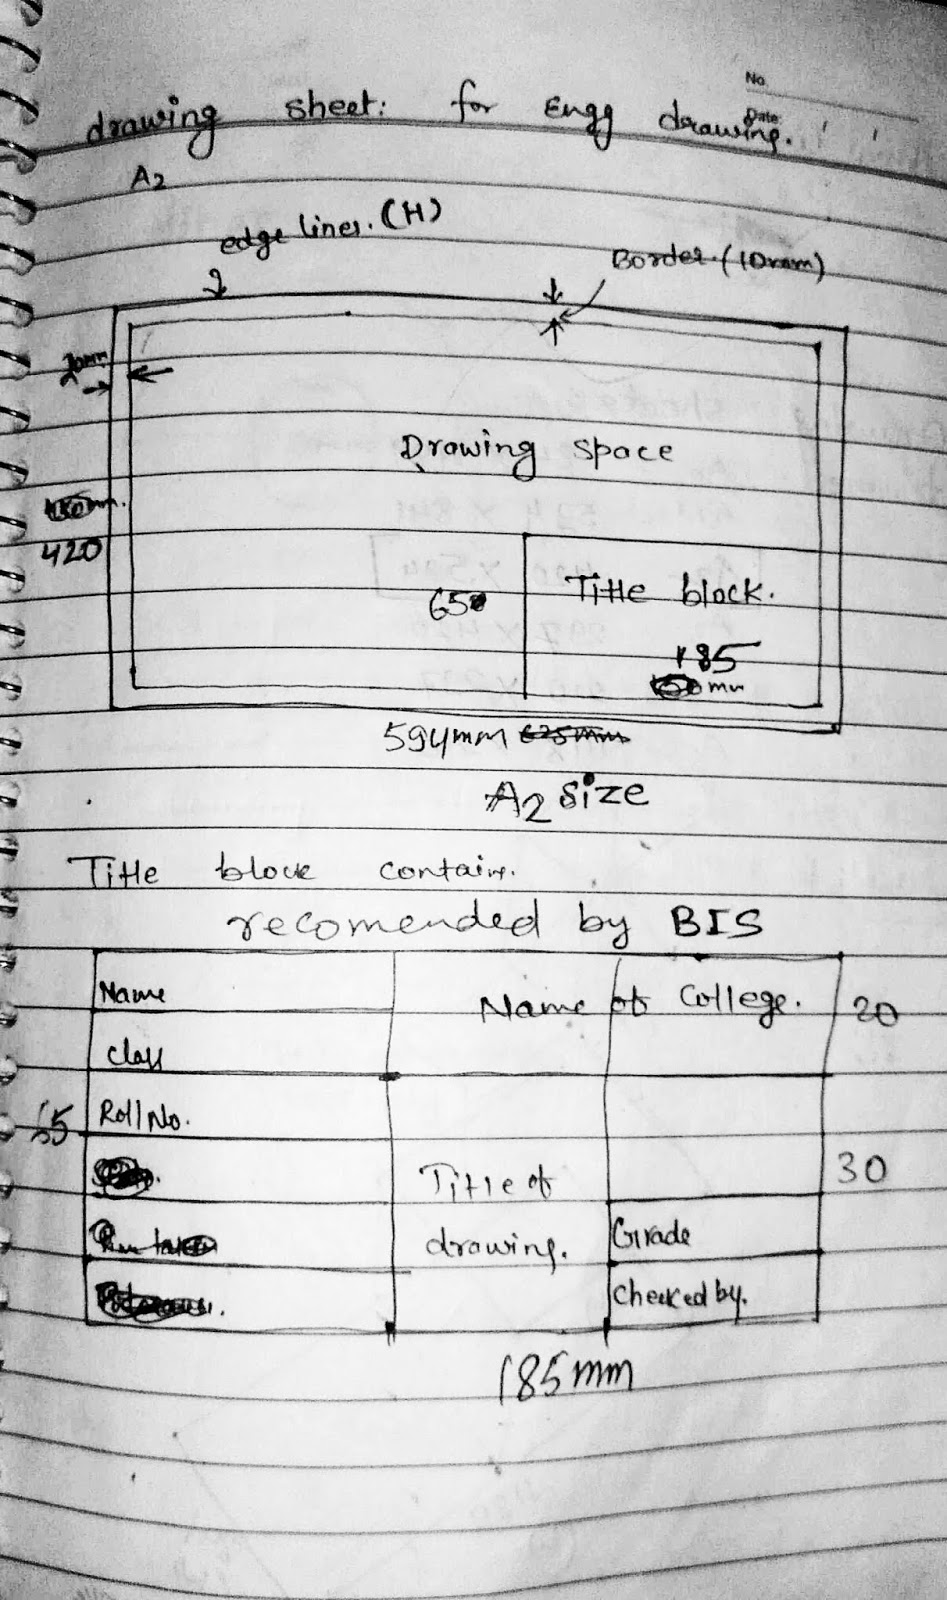 No.
Date
drawing sheet: for Engg drawing.
A2
edge lines. (H)
Border. (10mm)
20mm
Drawing space
420
650
Title block.
185
mm
594mm 625mm
A2 size
Title block contain.
recomended by BIS
Name
Name of College.
20
Class
65
Roll No.
30
Title of
drawing.
Grade
Checked by.
185mm